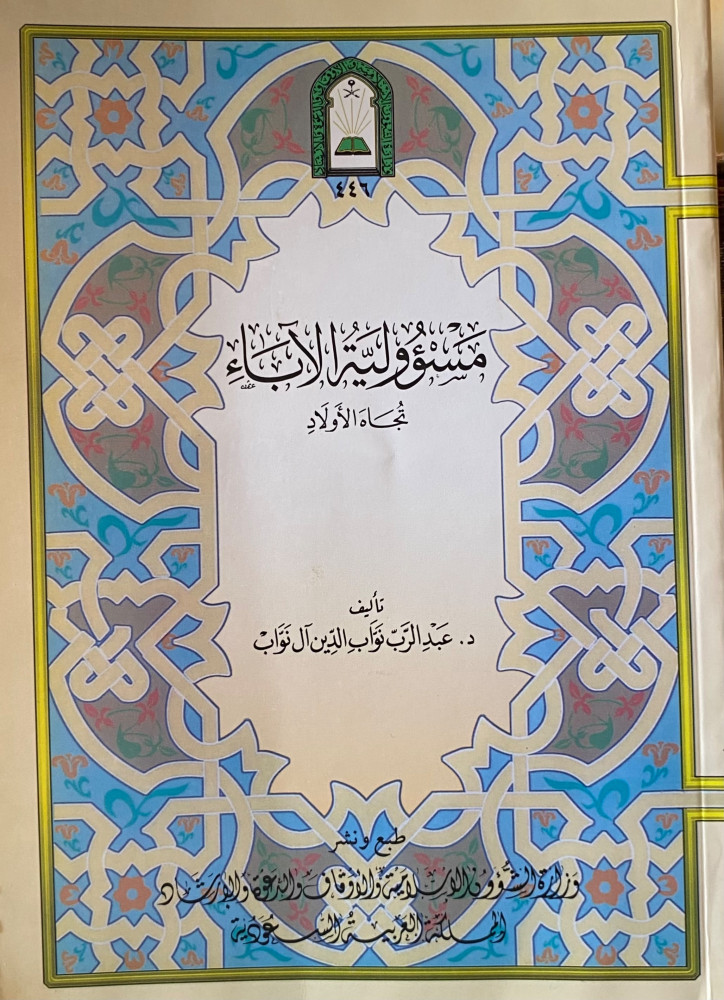 ٤٤٦
مَسْؤُوليَّةُ الآبَاءِ
تُجَاهَ الأَولَادِ
تأليف
د. عَبْدِ الرَّبِّ نَوَّابِ الدِّين آل نَوَّابْ
طبع ونشر
وزارة الشؤون الإسلامية والأوقاف والدعوة والإرشاد
المملكة العربية السعودية